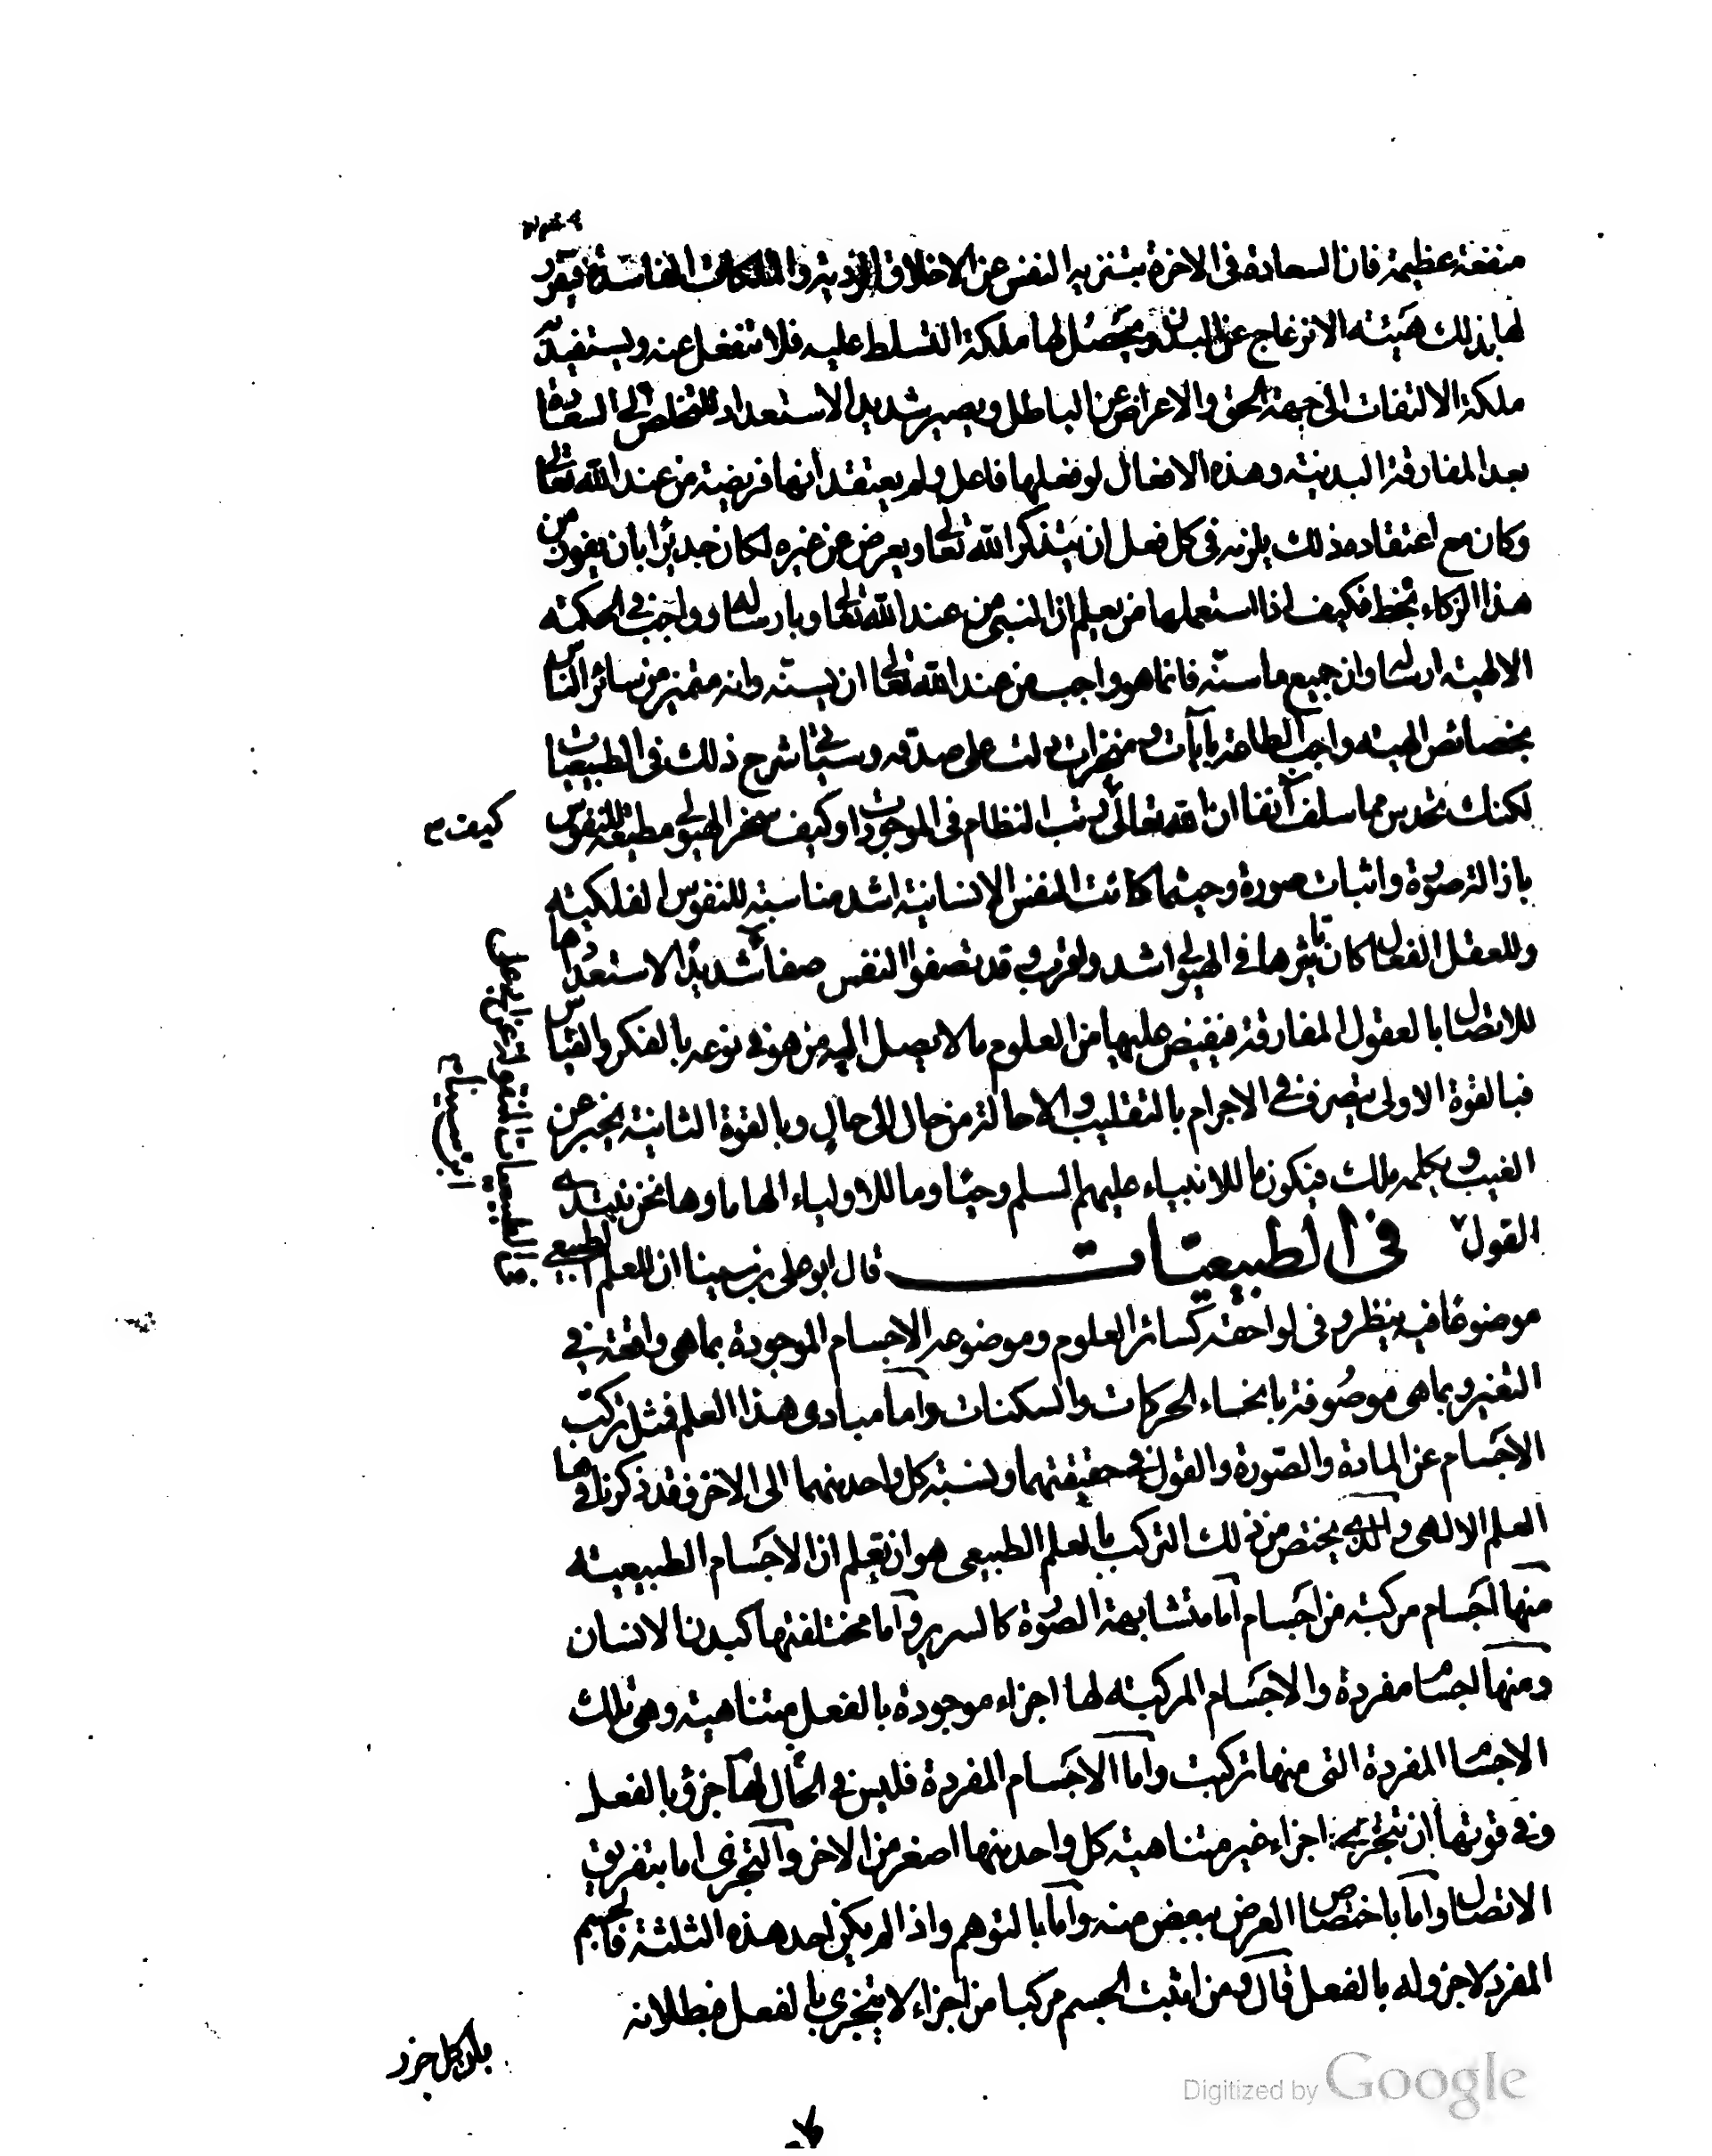 منفعة عظيمة فان السعادة فى الاخرة بتنزيه النفس عن الاخلاق الردية والملكات الفاسدة فيتقرر
لها بذلك هيئة الانزعاج عن البدن ويحصل لها ملكة التسلط عليه فلا تنفعل عنه ويستفيد
ملكة الالتفات الى جهة الحق والاعراض عن الباطل ويصير شديد الاستعداد للتخلص الى السعادة
بعد المفارقة البدنية وهذه الافعال لو فعلها فاعل ولم يعتقد انها فريضة من عند الله تعالى
وكان مع اعتقاده ذلك يلزمه فى كل فعل ان يتذكر الله تعالى ويعرض عن غيره لكان جديرا بان يفوز من
هذا الزكاء بحظ فكيف اذا استعملها من يعلم ان النبى من عند الله تعالى وبارساله وواجب فى الحكمة
الالهية ارساله وان جميع ما سنه فانما هو واجب من عند الله تعالى ان يسنه وانه متميز من سائر الناس
بخصائص الهية واجب الطاعة بآيات ومعجزات دلت على صدقه وسيأتى شرح ذلك فى الطبيعيات
لكنك تحدس مما سلف آنفا ان الله تعالى كيف رتب النظام فى الموجودات وكيف سخر الهيولى مطيعة للنفوس
كيف
بازالة صورة واثبات صورة وحيثما كانت النفس الانسانية اشد مناسبة للنفوس الفلكية
وللعقل الفعال كان تأثيرها فى الهيولى اشد واغرب وقد تصفوا النفس صفاء شديدا لاستعدادها
للاتصال بالعقول المفارقة فيفيض عليها من العلوم ما لا يصل اليه من هو فى نوعه بالفكر والقياس
فبالقوة الاولى يتصرف فى الاجرام بالتقليب والاحالة من حال الى حال وبالقوة الثانية يخبر عن
الغيب ويكلمه ملك فيكون ما للانبياء عليهم السلم وحيا وما للاولياء الهاما وها نحن نبتدئ
القول فى الطبيعيات قال ابو على بن سينا ان للعلم الطبيعى
الطبيعيات المنقولة عن ابى على
ابن سينا
موضوعا فيه ينظر وفى لواحقه كسائر العلوم وموضوعه الاجسام الموجودة بما هى واقعة فى
التغير وبما هى موصوفة بانحاء الحركات والسكنات واما مبادى هذا العلم فمثل تركب
الاجسام عن المادة والصورة والقول فى حقيقتهما ونسبة كل واحد منهما الى الاخر فقد ذكرناها فى
العلم الالهى والذى يختص من ذلك التركب بالعلم الطبيعى هو ان تعلم ان الاجسام الطبيعية
منها اجسام مركبة من اجسام اما متشابهة الصورة كالسرير واما مختلفتها كبدن الانسان
ومنها اجساما مفردة والاجسام المركبة لها اجزاء موجودة بالفعل متناهية وهى تلك
الاجسام المفردة التى منها تركبت واما الاجسام المفردة فليس فى الحال لها جزؤ بالفعل
وفى قوتها ان تتجزى اجزاء غير متناهية كل واحد منها اصغر من الاخر والتجزى اما بتفريق
الاتصال واما باختصاص العرض ببعض منه واما بالتوهم واذا لم يكن احد هذه الثلثة فالجسم
المفرد لا جزو له بالفعل قال ومن اثبت الجسم مركبا من اجزاء لا يتجزى بالفعل فبطلانه
بان كل جزء
Digitized by Google